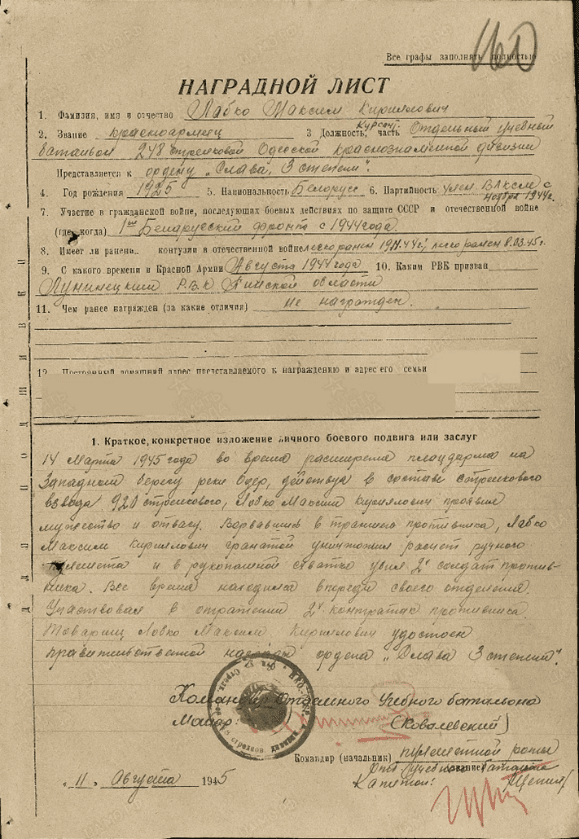 Все графы заполнять полностью
НАГРАДНОЙ ЛИСТ
1. Фамилия, имя и отчество Лавко Максим Кириллович
2. Звание красноармеец 3 Должность, часть Курсант, Отдельный учебный
батальон 248 стрелковой Одесской краснознаменной дивизии
Представляется к ордену „Слава, 3 степени".
4. Год рождения 1925 5. Национальность Белорус 6. Партийность член ВЛКСМ с
ноября 1944г.
7. Участие в гражданской войне, последующих боевых действиях по защите СССР и отечественной войне
(где, когда) 1ый Белорусский фронт с 1944 года
8. Имеет ли ранения и контузии в отечественной войне легко ранен 44г, легко ранен 8.03.45г.
9. С какого времени в Красной Армии Августа 1944 года 10. Каким РВК призван
Лунинецким РВК Пинской области
11. Чем ранее награжден (за какие отличия) Не награжден.
12. Постоянный домашний адрес представляемого к награждению и адрес его семьи
1. Краткое, конкретное изложение личного боевого подвига или заслуг
14 Марта 1945 года во время расширения плацдарма на
Западном берегу реки Одер, действуя в составе стрелкового
взвода 920 стрелкового, Лавко Максим Кириллович проявил
мужество и отвагу. Ворвавшись в траншею противника, Лавко
Максим Кириллович гранатой уничтожил расчет ручного
пулемета и в рукопашной схватке убил 2х солдат против-
ника. Все время находился впереди своего отделения.
Участвовал в отражении 2х контратак противника
Товарищ Лавко Максим Кириллович удостоен
правительственной награды ордена „Слава 3 степени".
Командир Отдельного Учебного батальона
Майор (Ковалевский)
Командир (начальник) пулеметной роты
Отд. Учебного батальона
Капитан:
„11" Августа 1945